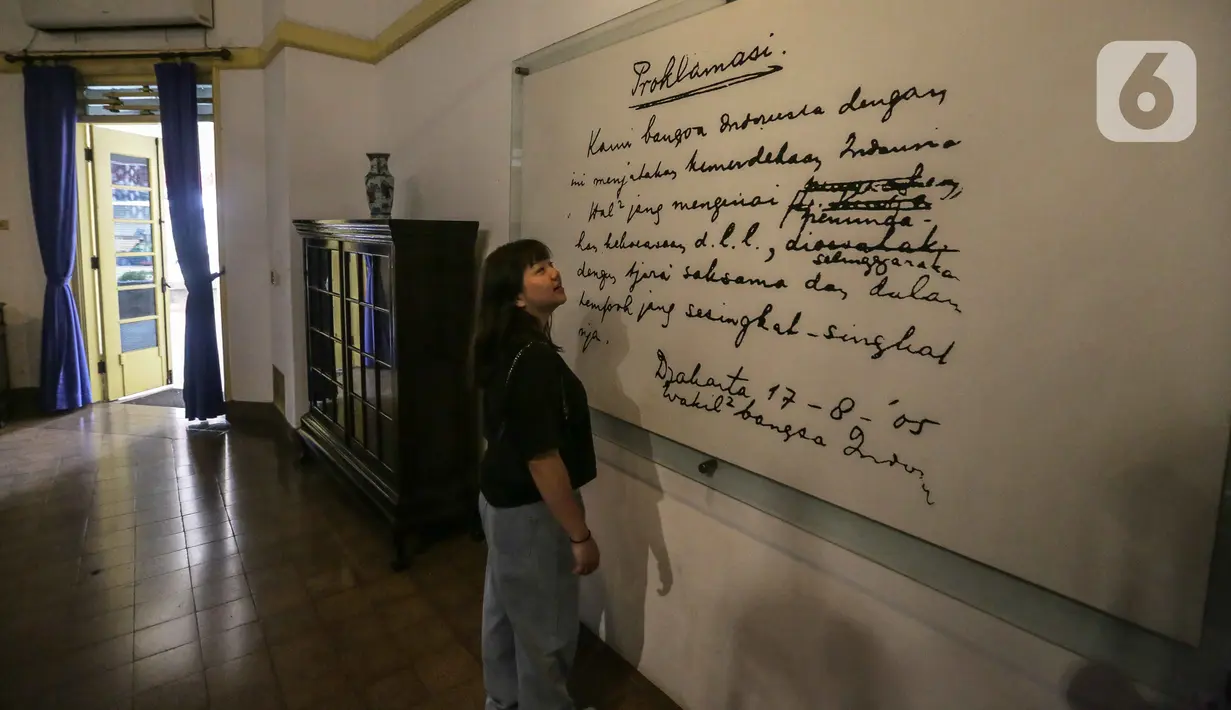 6
Proklamasi.
Kami bangsa Indonesia dengan
ini menjatakan kemerdekaan Indonesia
Hal² jang mengenai
peminda-
han kekoeasaan d.l.l., dioesahakan
selenggarakan
dengan tjara saksama dan dalam
tempoh jang sesingkat-singkat
nja.
Djakarta 17-8-'05
Wakil² bangsa Indon